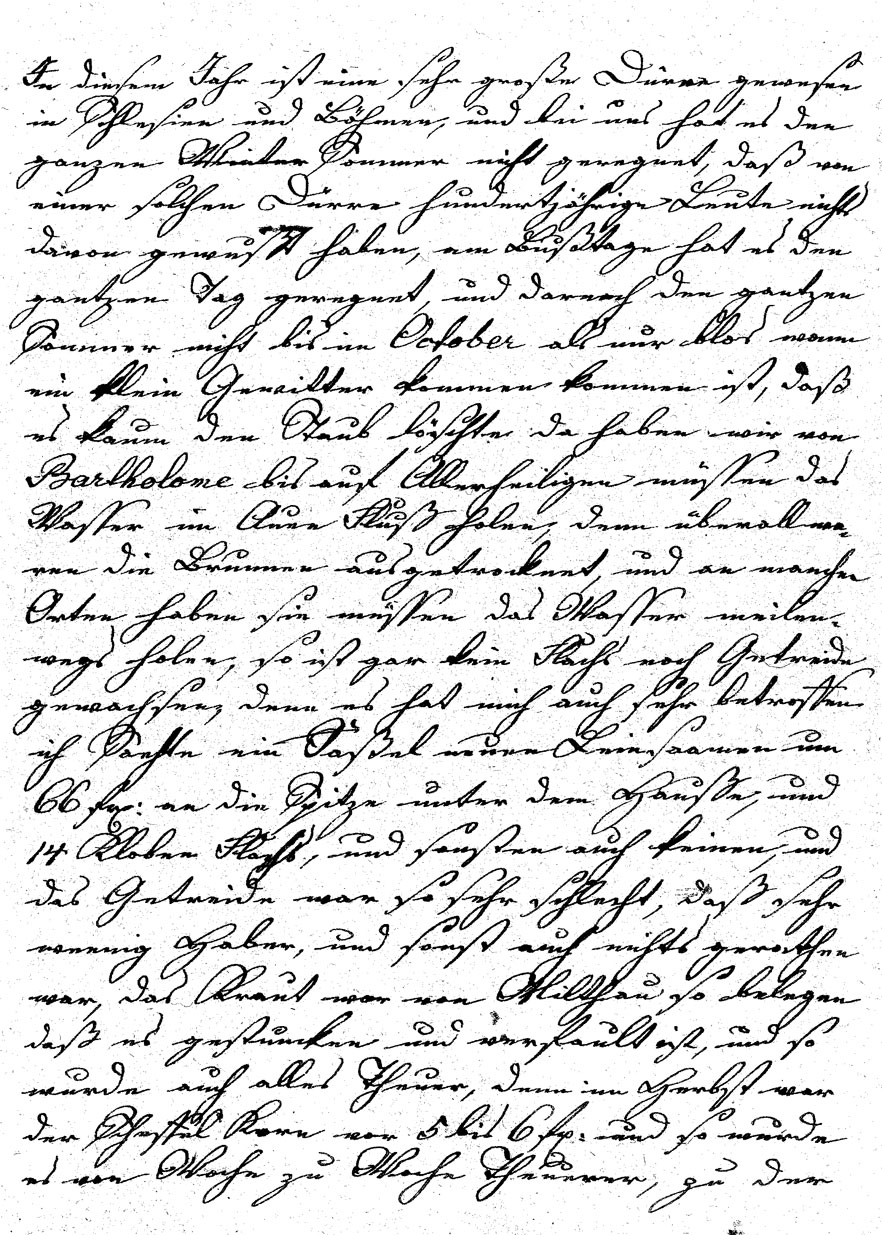 In diesem Jahr ist eine sehr große Dürre gewesen
in Schlesien und Böhmen, und bei uns hat es den
ganzen Winter Sommer nicht geregnet, daß von
einer solchen Dürre hundertjährige Leute nichts
davon gewust haben, am Bußtage hat es den
gantzen Tag geregnet, und darnach den gantzen
Sommer nicht bis im October als nur blos wann
ein klein Gewitter kommen kommen ist, daß
es kaum den Staub löschte da haben wir von
Bartholome bis auf Allerheiligen müssen das
Wasser im Auen Fluß holen, denn überall wa-
ren die Brunnen ausgetrocknet, und an manchen
Orten haben sie müssen das Wasser meilen-
wegs holen, so ist gar kein Flachs noch Getreide
gewachsen, denn es hat mich auch sehr betroffen
ich Saehte ein Fäßel neuen Leinsaamen um
66 fr: an die Spitze unter dem Hauße, und
14 Kloben Flachs, und sonsten auch keinen, und
das Getreide war so sehr schlecht, daß sehr
weenig Haber, und sonst auch nichts gerathen
war, das Kraut war von Milthau so belegen
daß es gestuncken und verfault ist, und so
wurde auch alles Theuer, denn im Herbst war
der Scheffel Korn vor 5 bis 6 fr: und so wurde
es von Woche zu Woche Theuerer, zu der